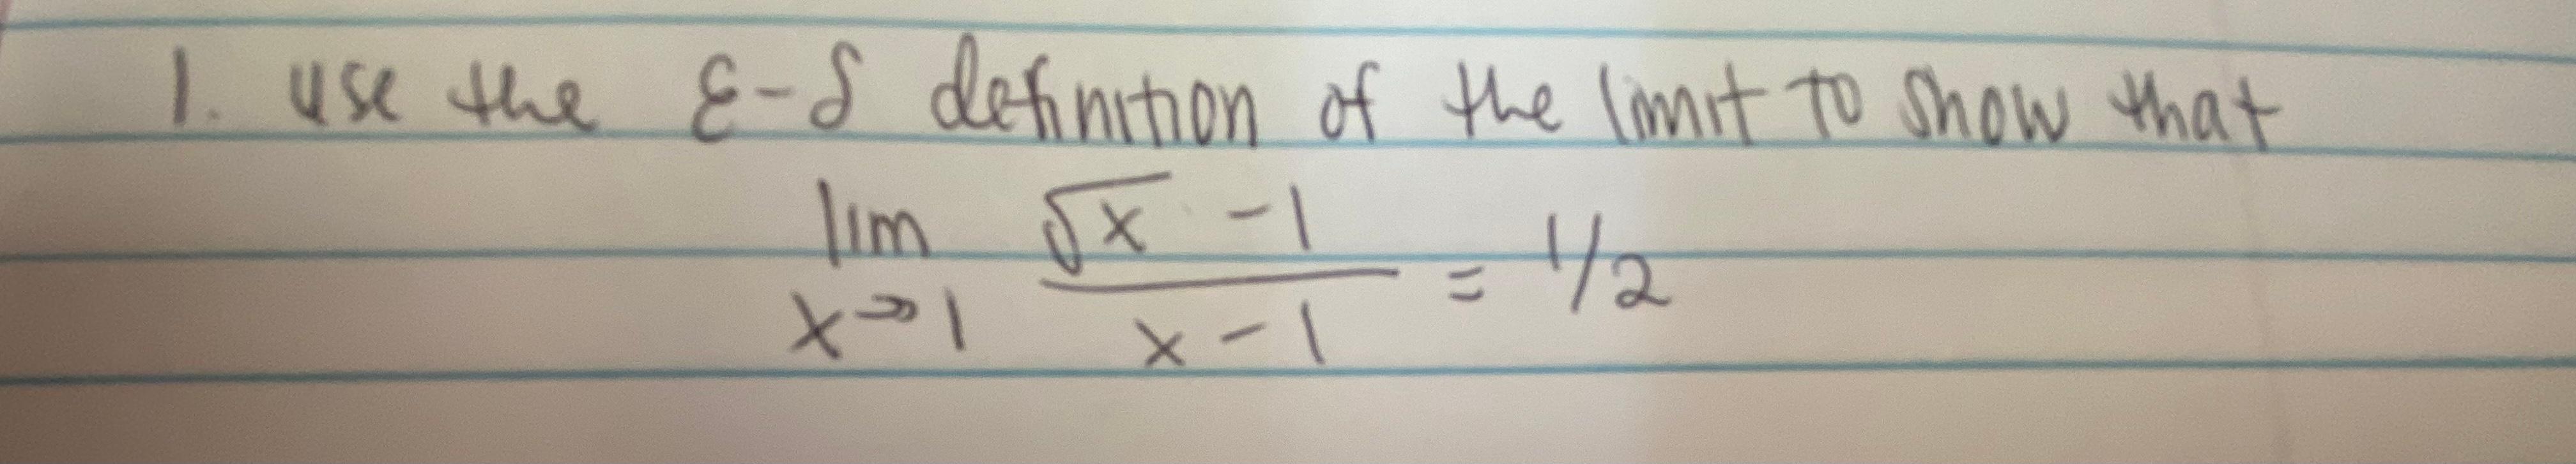 1. use the ε-δ definition of the limit to show that
lim x→1 (√x - 1)/(x - 1) = 1/2